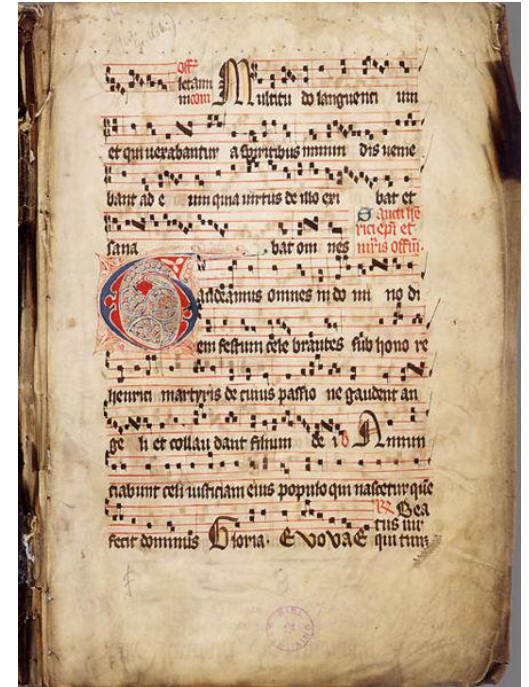 letam Multitu do languenti um
incom
et qui uexabantur a spiritibus inmun dis uenie
bant ad e um quia uirtus de illo exi bat et
sana bat om nes
Sancti he
rici epi et
mris offm.
Gaudeamus omnes in do mi no di
em festum cele brantes sub hono re
henrici martyris de cuius passio ne gaudent an
ge li et collau dant filium de i Annun
ciabunt celi iusticiam eius populo qui nascetur que
fecit dominus Gloria. EVOVAE
Bea
tus uir
qui tim